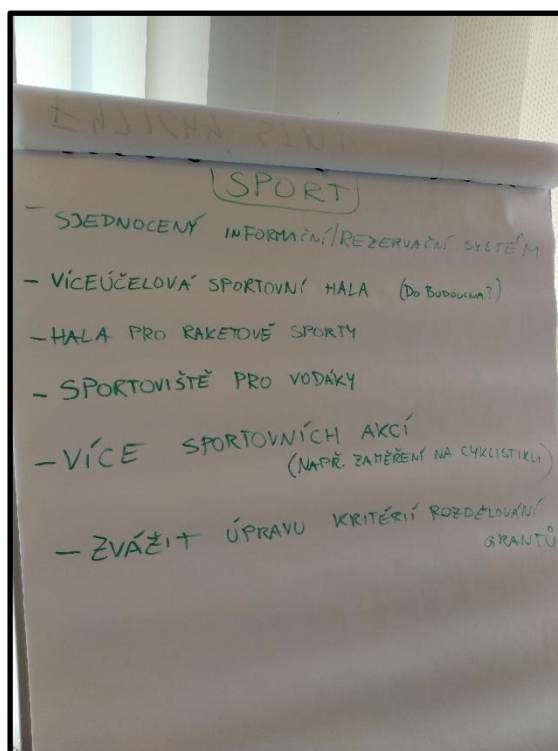 SPORT
- SJEDNOCENÝ INFORMAČNÍ/REZERVAČNÍ SYSTÉM
- VÍCEÚČELOVÁ SPORTOVNÍ HALA (DO BUDOUCNA?)
- HALA PRO RAKETOVÉ SPORTY
- SPORTOVIŠTĚ PRO VODÁKY
- VÍCE SPORTOVNÍCH AKCÍ
(NAPŘ. ZAMĚŘENÍ NA CYKLISTIKU)
- ZVÁŽIT ÚPRAVU KRITÉRIÍ ROZDĚLOVÁNÍ
GRANTŮ